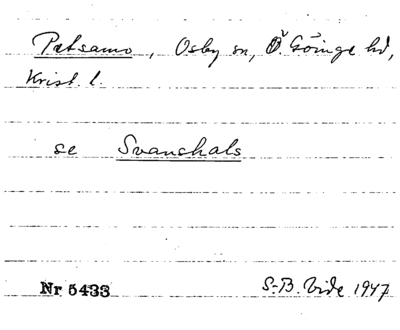 Petsamo, Osby sn, Ö. Göinge hd,
Krist. l.
se Svanshals
Nr 5433 S.-B. Vide 1947